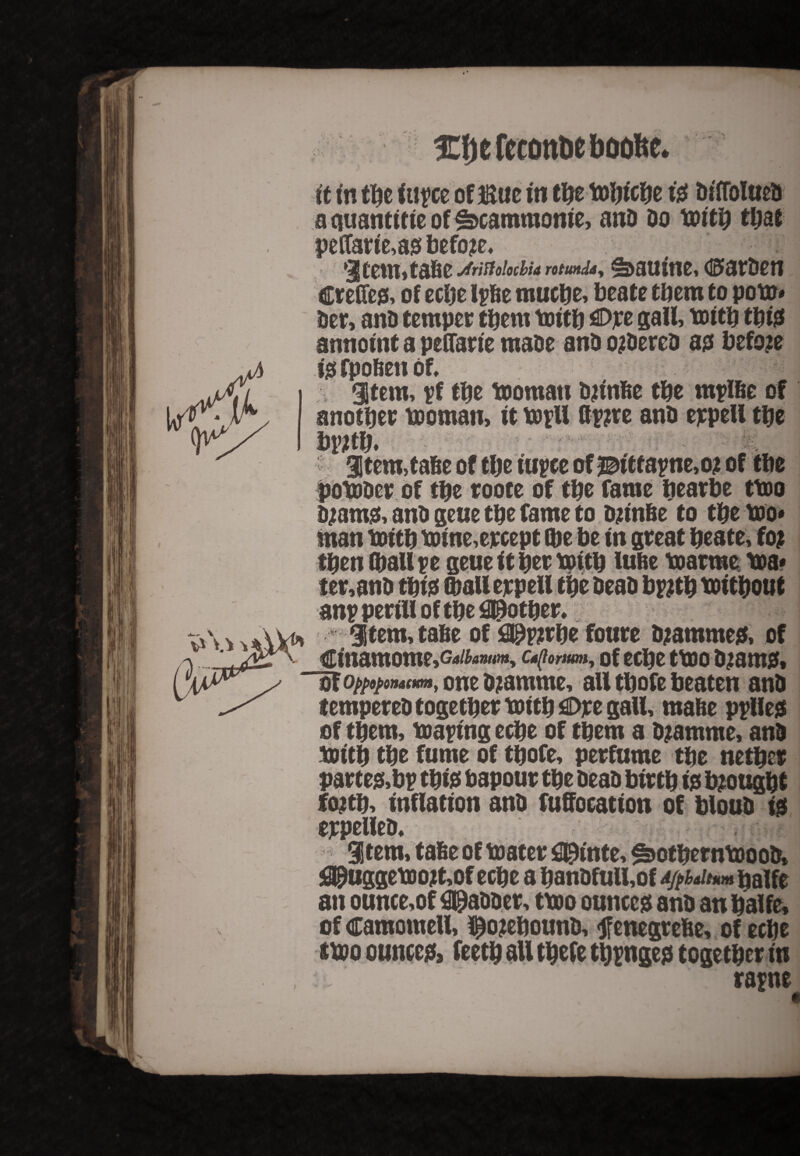 The seconde booke.
it in the iuyce of Rue in the whiche is dissolued
a quantitie of Scammonie, and do with that
pessarie, as before.
Item, take Aristolochia rotunda, Sauine, Garden
Cresses, of eche lyke muche, beate them to pow-
der, and temper them with Oxe gall, with this
annoint a pessarie made and ordered as before
is spoken of.
womons
milk
Item, yf the woman drinke the mylke of
another woman, it wyll styrre and expell the
byrth.
Item, take of the iuyce of Dittayne, or of the
powder of the roote of the same hearbe two
drams, and geue the same to drinke to the wo-
man with wine, except she be in great heate, for
then shall ye geue it her with luke warme wa-
ter, and this shall expell the dead byrth without
any perill of the Mother.
Item, take of Myrrhe foure drammes, of
Cinamome, Galbanum, Castorium, of eche two drams,
of Oppoponacum, one dramme, all those beaten and
tempered together with Oxe gall, make pylles
of them, waying eche of them a dramme, and
with the fume of those, perfume the nether
partes, by this vapour the dead birth is brought
forth, inflation and suffocation of bloud is
expelled.
Item, take of water Minte, Sothernwood,
Muggewort, of eche a handfull, of Asphaltum halfe
an ounce, of Madder, two ounces and an halfe,
of Camomell, Horehound, Fenegreke, of eche
two ounces, seeth all these thynges together in
rayne